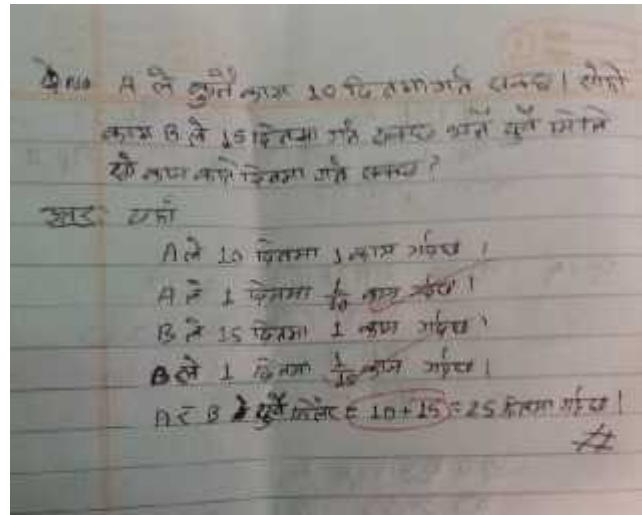 A ले कुनै काम 10 दिनमा गर्न सक्छ । सोही
काम B ले 15 दिनमा गर्न सक्छ भने दुवै मिलि
सो काम कति दिनमा गर्न सक्छन ?
यहाँ
A ले 10 दिनमा 1 काम गर्दछ ।
A ले 1 दिनमा 1/10 काम गर्दछ ।
B ले 15 दिनमा 1 काम गर्दछ ।
B ले 1 दिनमा 1/15 काम गर्दछ ।
A र B दुवै मिलेर = 10+15 = 25 दिनमा गर्दछ ।